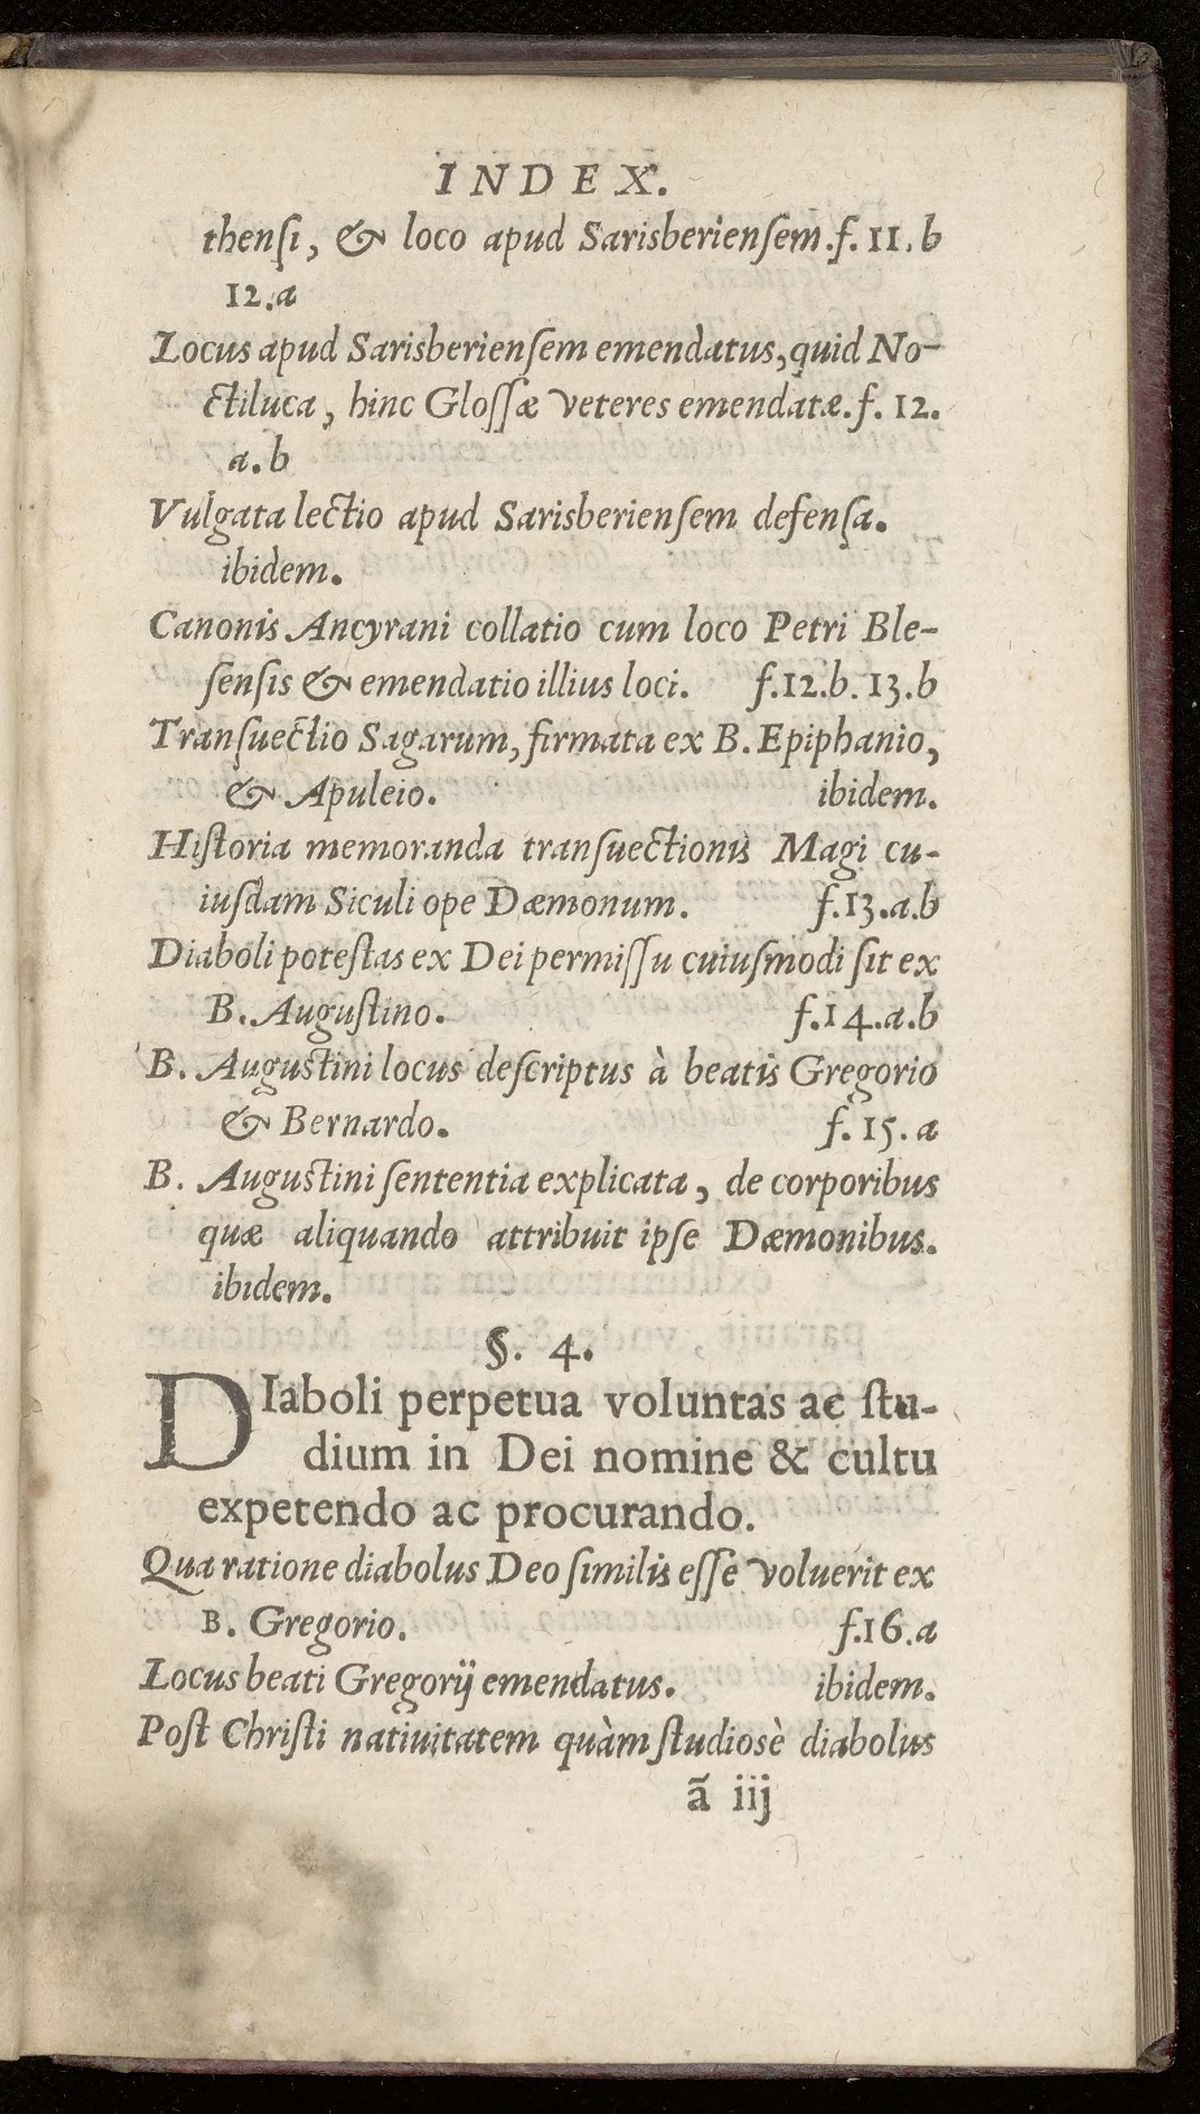 INDEX.
thenſi, & loco apud Sarisberienſem. f. 11. b
12. a
Locus apud Sarisberienſem emendatus, quid No-
ctiluca, hinc Gloſſæ veteres emendatæ. f. 12.
a. b
Vulgata lectio apud Sarisberienſem defenſa.
ibidem.
Canonis Ancyrani collatio cum loco Petri Ble-
ſenſis & emendatio illius loci. f. 12. b. 13. b
Tranſuectio Sagarum, firmata ex B. Epiphanio,
& Apuleio. ibidem.
Hiſtoria memoranda tranſuectionis Magi cu-
iuſdam Siculi ope Dæmonum. f. 13. a. b
Diaboli poteſtas ex Dei permiſſu cuiuſmodi ſit ex
B. Auguſtino. f. 14. a. b
B. Auguſtini locus deſcriptus à beatis Gregorio
& Bernardo. f. 15. a
B. Auguſtini ſententia explicata, de corporibus
quæ aliquando attribuit ipſe Dæmonibus.
ibidem.
§. 4.
DIaboli perpetua voluntas ac ſtu-
dium in Dei nomine & cultu
expetendo ac procurando.
Qua ratione diabolus Deo ſimilis eſſe voluerit ex
B. Gregorio. f. 16. a
Locus beati Gregorij emendatus. ibidem.
Poſt Chriſti natiuitatem quàm ſtudiosè diabolus
ã iij